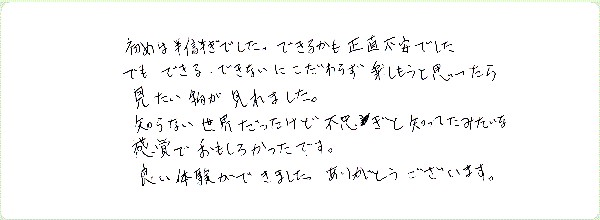 初めは半信半ぎでした。できるかも正直不安でした
でも できる・できないに こだわらず 楽しもうと思ったら
見たい物が 見れました。
知らない世界だったけど 不思ぎと知ってたみたいな
感覚で おもしろかったです。
良い体験ができました。ありがとうございます。